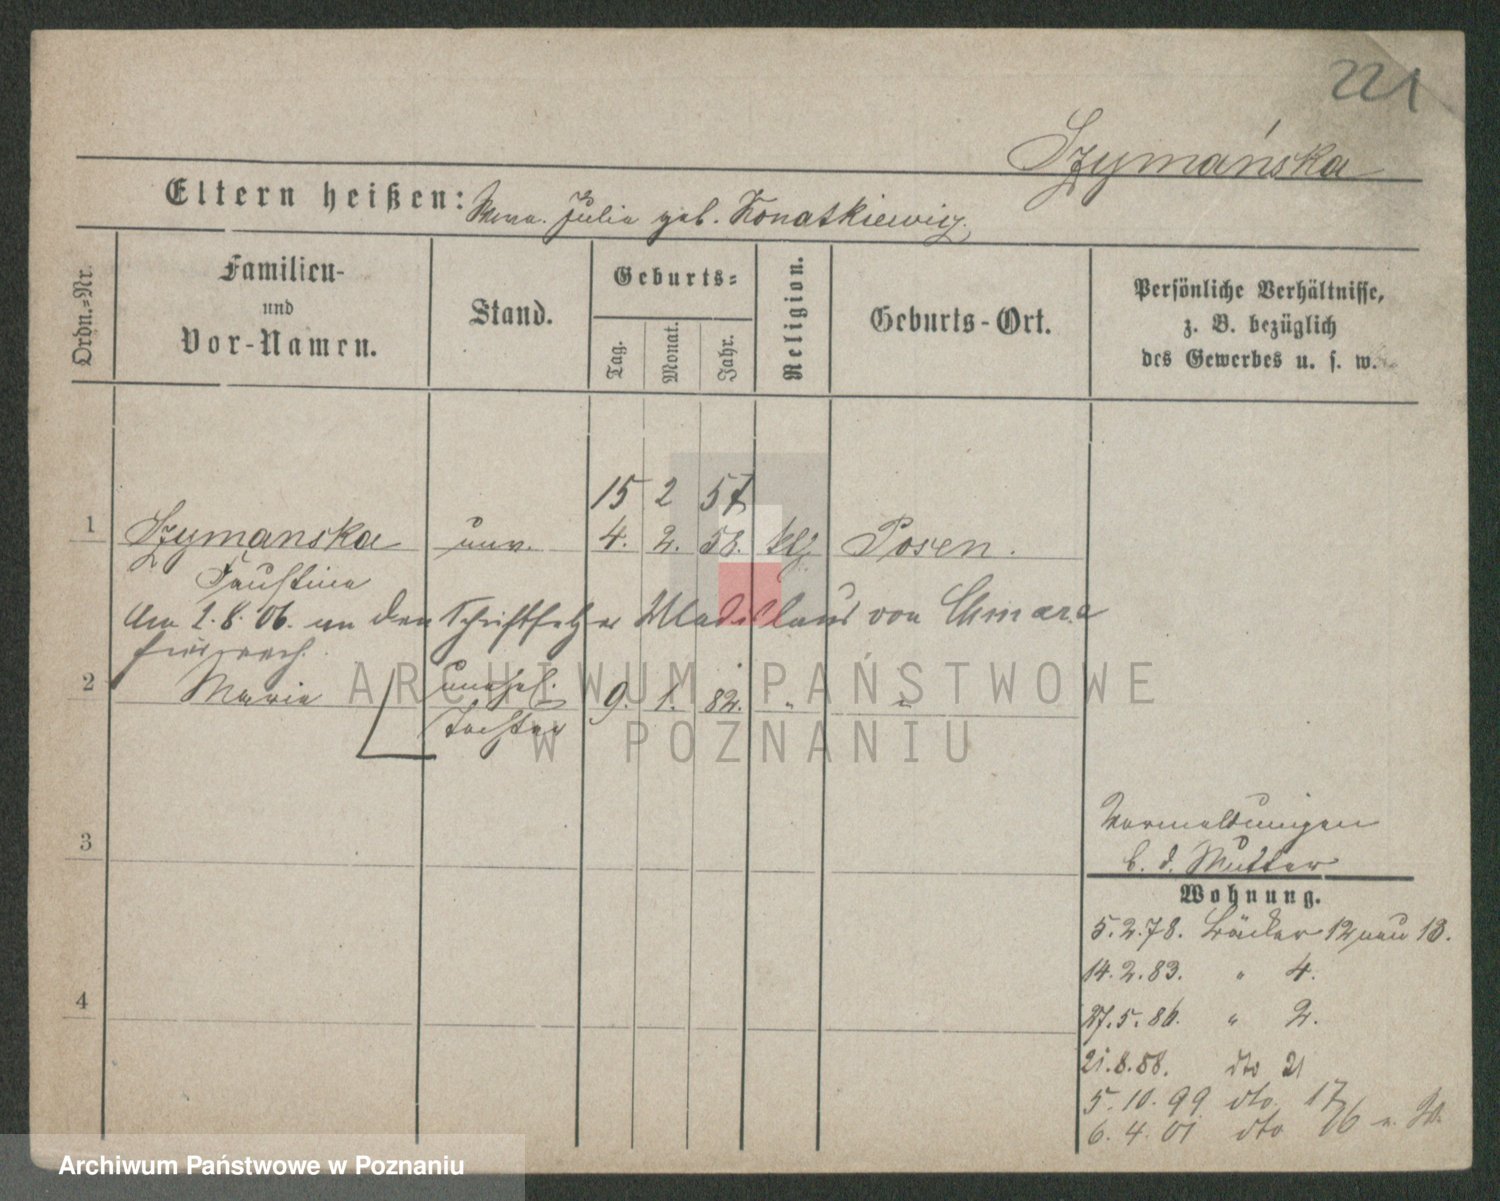 221
Szymańska
Eltern heißen: Julia geb. Konatkiewicz.
Ordn.-Nr.
Familien-
und
Vor-Namen.
Stand.
Geburts-
Tag.
Monat.
Jahr.
Religion.
Geburts-Ort.
Persönliche Verhältnisse,
z. B. bezüglich
des Gewerbes u. s. w.
15 2 57
1 Szymanska unv. 4. 2. 58. kth Posen.
Faustina
Am 2.8.06. an den Schriftsetzer Wladislaus von
2 Marie unehel. 9. 1. 82. " "
Tochter
3
4
Vormeldungen
b. d. Mutter
Wohnung.
5.2.78. Bäcker 12 neu 13.
14.2.83. " 4.
27.5.86. " 2.
21.8.88. dto 21
5.10.99 dto. 17
6.4.01 dto 26 u.
ARCHIWUM PAŃSTWOWE
W POZNANIU
Archiwum Państwowe w Poznaniu